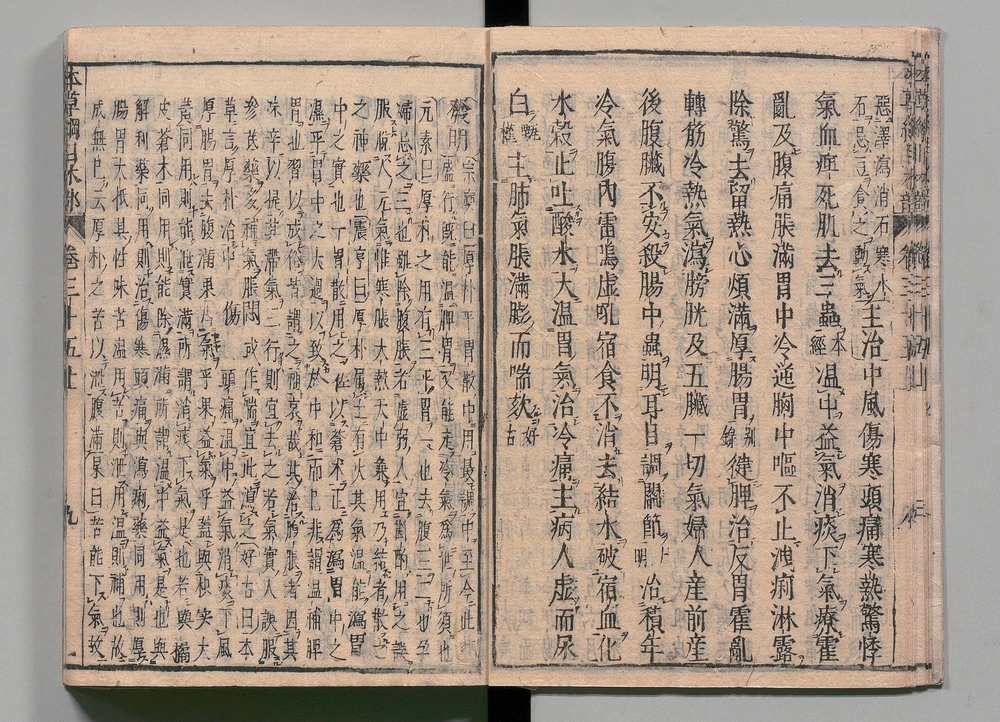 惡澤瀉消石寒水
石忌豆食之動氣主治中風傷寒頭痛寒熱驚悸
氣血痺死肌去三蟲本經温中益氣消痰下氣療霍
亂及腹痛脹滿胃中冷逆胸中嘔不止洩痢淋露
除驚去留熱心煩滿厚腸胃別錄健脾治反胃霍亂
轉筋冷熱氣瀉膀胱及五臟一切氣婦人産前産
後腹臟不安殺腸中蟲明耳目調關節大明治積年
冷氣腹內雷鳴虛吼宿食不消去結水破宿血化
水穀止吐酸水大温胃氣治冷痛主病人虛而尿
白甄權主肺氣脹滿膨而喘欬好古
發明宗奭曰厚朴平胃散中用最調中至今此藥
盛行既能温脾胃又能走冷氣爲世所須也
元素曰厚朴之用有三平胃一也去腹二也孕
婦忌之三也雖除腹脹若虛弱人宜斟酌用之誤
服脫人元氣惟寒脹大熱藥中兼用乃結者散之
之神藥也震亨曰厚朴屬土有火其氣温能瀉胃
中之實也平胃散用之佐以蒼术正爲瀉胃中之
濕平胃土之太過以致於中和而已非謂温補脾
胃也習以成俗皆謂之補哀哉其治腹脹者因其
味辛以提其滯氣滯行則宜去之若氣實人誤服
參芪藥多補氣脹悶或作喘宜此瀉之好古曰本
草言厚朴治中風傷寒頭痛温中益氣消痰下氣
厚腸胃去腹滿果泄氣乎果益氣乎蓋與枳實大
黃同用則能泄實滿所謂消痰下氣是也若與橘
皮蒼术同用則能除濕滿所謂温中益氣是也與
解利藥同用則治傷寒頭痛與瀉痢藥同用則厚
腸胃大抵其性味苦温用苦則泄用温則補也故
成無已云厚朴之苦以泄腹滿杲曰苦能下氣故
本草綱目木部 卷三十五上 九